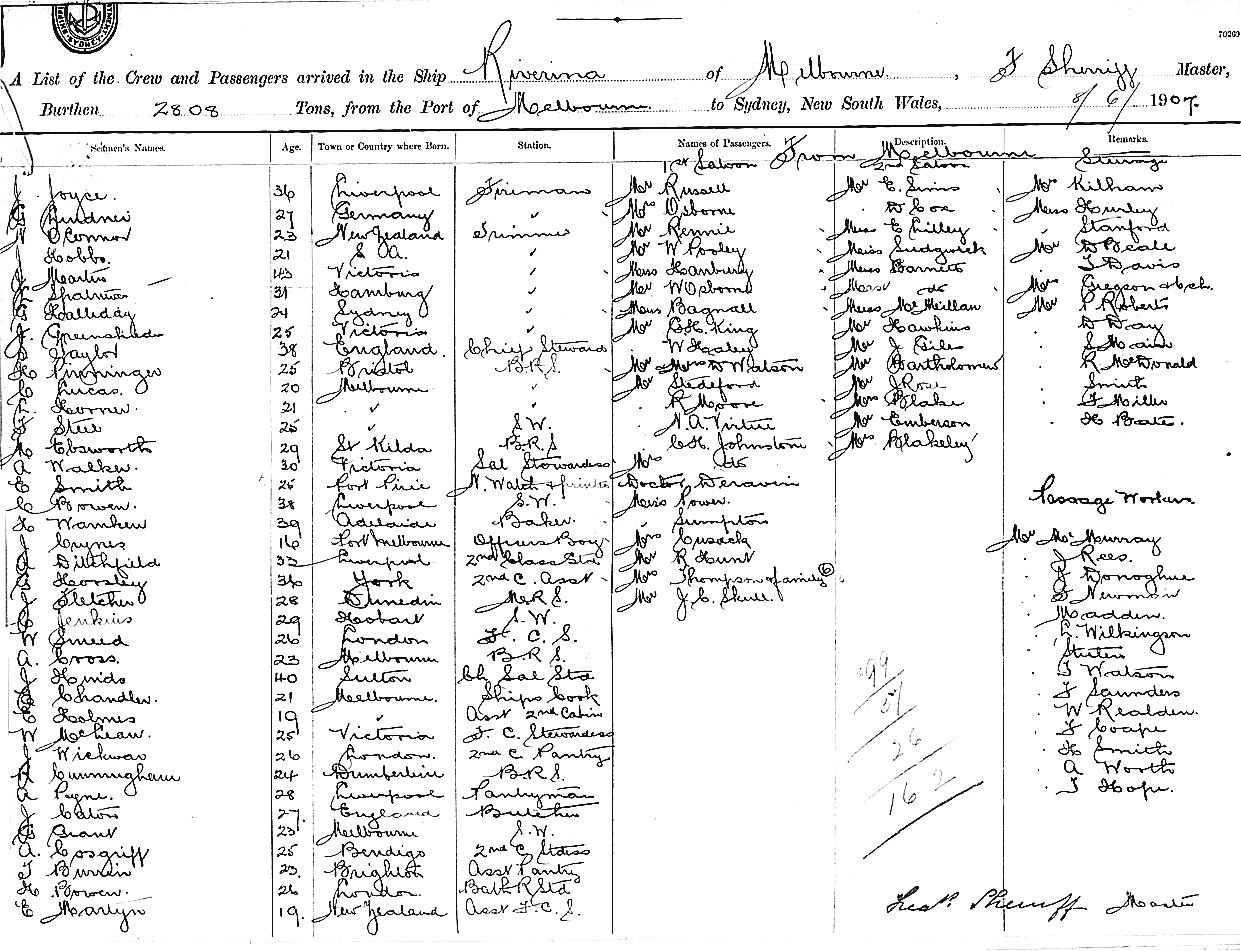 70269
A List of the Crew and Passengers arrived in the Ship Riverina of Melbourne, F Sherriff Master,
Burthen 2808 Tons, from the Port of Melbourne to Sydney, New South Wales, 8/6/1907.
Seamen's Names. Age. Town or Country where Born. Station. Names of Passengers. Description. Remarks.
1st Saloon From Melbourne 2nd Saloon Steerage
J Joyce. 36 Liverpool Fireman Mr Russell Mr E. Sims Mr Kilham
Lindner 27 Germany ✓ Mrs Osborne D Cox Miss Hurley
O'Connor 23 New Zealand Trimmer Mr Rennie Miss E Lilley Stanford
J Hobbs. 21 S. A. ✓ Mr W Pooley Miss Sudgwick Mr D Beale
J Martin 43 Victoria ✓ Miss Hanbury Miss Barnett T Davis
31 Hamburg ✓ Mr W Osborne do Mrs Gregson & ch.
Halliday 24 Sydney ✓ Miss Bagnall Miss McMillan Mr P Roberts
J. 25 Victoria ✓ Mr C.H. King Mr Hawkins D Day
Taylor 38 England. Chief Steward W Haley Mr J Giles S Main
H 25 Bristol B.R.S. Mr & Mrs D Watson Mr Bartholomew R McDonald
C Lucas. 20 Melbourne ✓ Mr Stedeford Mr J Rose Smith
L. Horne. 21 ✓ ✓ R Moore Mrs Blake F Miller
F Steel 25 S.W. N.A. Virtue Mr Emberson H Bate.
M Ebsworth 29 St Kilda B.R.S C.H. Johnstone Mrs Blakeley
A Walker. 30 Victoria Sal Stewardess Mrs do
E Smith 26 Port Pirie N. Watch & printer Doctor Deravin
C Bowen. 38 Liverpool S.W. Miss Power. Passage Workers
H Wamken 39 Adelaide Baker. Sumpton
J Cynes 16 Port Melbourne Officers Boy Mrs Cusack Mr McMurray
A Ditchfield 33 Liverpool 2nd Class Std Mr R Hunt J Rees.
Horsley 36 York 2nd C. Asst Mrs Thompson & family 6 J Donoghue
J Fletcher 28 Dunedin M.R S. Mr J.C. Skull. F Newman
C Jenkins 29 Hobart S.W. Madden.
W Smeed 26 London F. C. S. L. Wilkingson
A. Cross. 23 Melbourne B.R S.
J Hinds 40 Sutton Ch Sal Std T Watson
Chandler. 21 Melbourne. Ships Cook F Saunders
C Holmes 19 ✓ Asst 2nd Cabin W Realden.
W McLean. 25 Victoria F. C. Stewardess F Coape
J Wickwar 26 London. 2nd C. Pantry H Smith
A Cunningham 24 B.R.S. A Worth
A Pyne. 28 Liverpool Pantryman T Hope.
J Eaton 27. England Butcher
G Grant 23 Melbourne S.W.
A. Cosgriff 25 Bendigo 2nd C. Stdess
T 23. Brighton Asst Pantry
H Bowen. 26 London. Bath R Std
E Martyn 19. New Zealand Asst F. C. S.
99
37
26
162
Sherriff Master